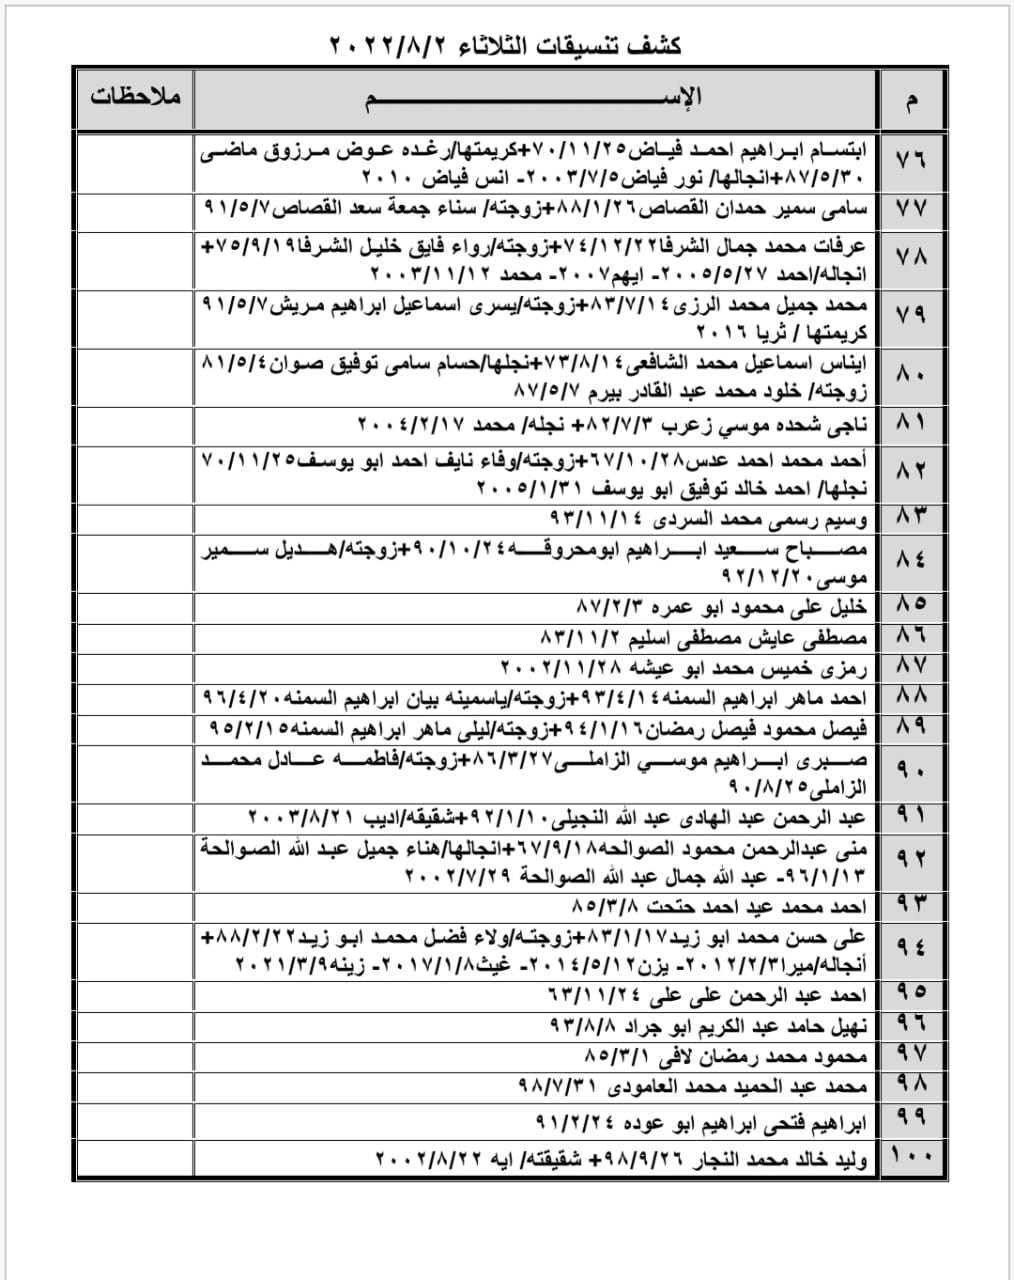 كشف تنسيقات الثلاثاء ٢٠٢٢/٨/٢
م الإســـــم ملاحظات
٧٦ ابتسـام ابـراهيم احمـد فيـاض٧٠/١١/٢٥+كريمتها/رغـده عـوض مـرزوق ماضـى
٨٧/٥/٣٠+انجالها/ نور فياض٢٠٠٣/٧/٥- انس فياض ٢٠١٠
٧٧ سامى سمير حمدان القصاص٨٨/١/٢٦+زوجته/ سناء جمعة سعد القصاص٩١/٥/٧
٧٨ عرفات محمد جمال الشرفا٧٤/١٢/٢٢+زوجته/رواء فايق خليل الشرفا٧٥/٩/١٩+
انجاله/احمد ٢٠٠٥/٥/٢٧- ايهم٢٠٠٧- محمد ٢٠٠٣/١١/١٢
٧٩ محمد جميل محمد الرزى٨٣/٧/١٤+زوجته/يسرى اسماعيل ابراهيم مريش٩١/٥/٧
كريمتها / ثريا ٢٠١٦
٨٠ ايناس اسماعيل محمد الشافعى٧٣/٨/١٤+نجلها/حسام سامى توفيق صوان٨١/٥/٤
زوجته/ خلود محمد عبد القادر بيرم ٨٧/٥/٧
٨١ ناجى شحده موسي زعرب ٨٢/٧/٣+ نجله/ محمد ٢٠٠٤/٢/١٧
٨٢ أحمد محمد احمد عدس٦٧/١٠/٢٨+زوجته/وفاء نايف احمد ابو يوسف٧٠/١١/٢٥
نجلها/ احمد خالد توفيق ابو يوسف ٢٠٠٥/١/٣١
٨٣ وسيم رسمى محمد السردى ٩٣/١١/١٤
٨٤ مصـــباح ســـعيد ابـــراهيم ابومحروقـــه٩٠/١٠/٢٤+زوجته/هـــديل ســـمير
موسى٩٢/١٢/٢٠
٨٥ خليل على محمود ابو عمره ٨٧/٢/٣
٨٦ مصطفى عايش مصطفى اسليم ٨٣/١١/٢
٨٧ رمزى خميس محمد ابو عيشه ٢٠٠٢/١١/٢٨
٨٨ احمد ماهر ابراهيم السمنه٩٣/٤/١٤+زوجته/ياسمينه بيان ابراهيم السمنه٩٦/٤/٢٠
٨٩ فيصل محمود فيصل رمضان٩٤/١/١٦+زوجته/ليلى ماهر ابراهيم السمنه٩٥/٢/١٥
٩٠ صـــبرى ابـــراهيم موســـي الزاملـــى٨٦/٣/٢٧+زوجته/فاطمـــه عـــادل محمـــد
الزاملى٩٠/٨/٢٥
٩١ عبد الرحمن عبد الهادى عبد الله النجيلى٩٢/١/١٠+شقيقه/اديب ٢٠٠٣/٨/٢١
٩٢ منى عبدالرحمن محمود الصوالحه٦٧/٩/١٨+انجالها/هناء جميل عبـد الله الصـوالحة
٩٦/١/١٣- عبد الله جمال عبد الله الصوالحة ٢٠٠٢/٧/٢٩
٩٣ احمد محمد عيد احمد حتحت ٨٥/٣/٨
٩٤ على حسن محمد ابو زيـد٨٣/١/١٧+زوجتـه/ولاء فضـل محمـد ابـو زيـد٨٨/٢/٢٢+
أنجاله/ميرا٢٠١٢/٢/٣- يزن٢٠١٤/٥/١٢- غيث٢٠١٧/١/٨- زينه٢٠٢١/٣/٩
٩٥ احمد عبد الرحمن على على ٦٣/١١/٢٤
٩٦ نهيل حامد عبد الكريم ابو جراد ٩٣/٨/٨
٩٧ محمود محمد رمضان لافى ٨٥/٣/١
٩٨ محمد عبد الحميد محمد العامودى ٩٨/٧/٣١
٩٩ ابراهيم فتحى ابراهيم ابو عوده ٩١/٢/٢٤
١٠٠ وليد خالد محمد النجار ٩٨/٩/٢٦+ شقيقته/ ايه ٢٠٠٢/٨/٢٢